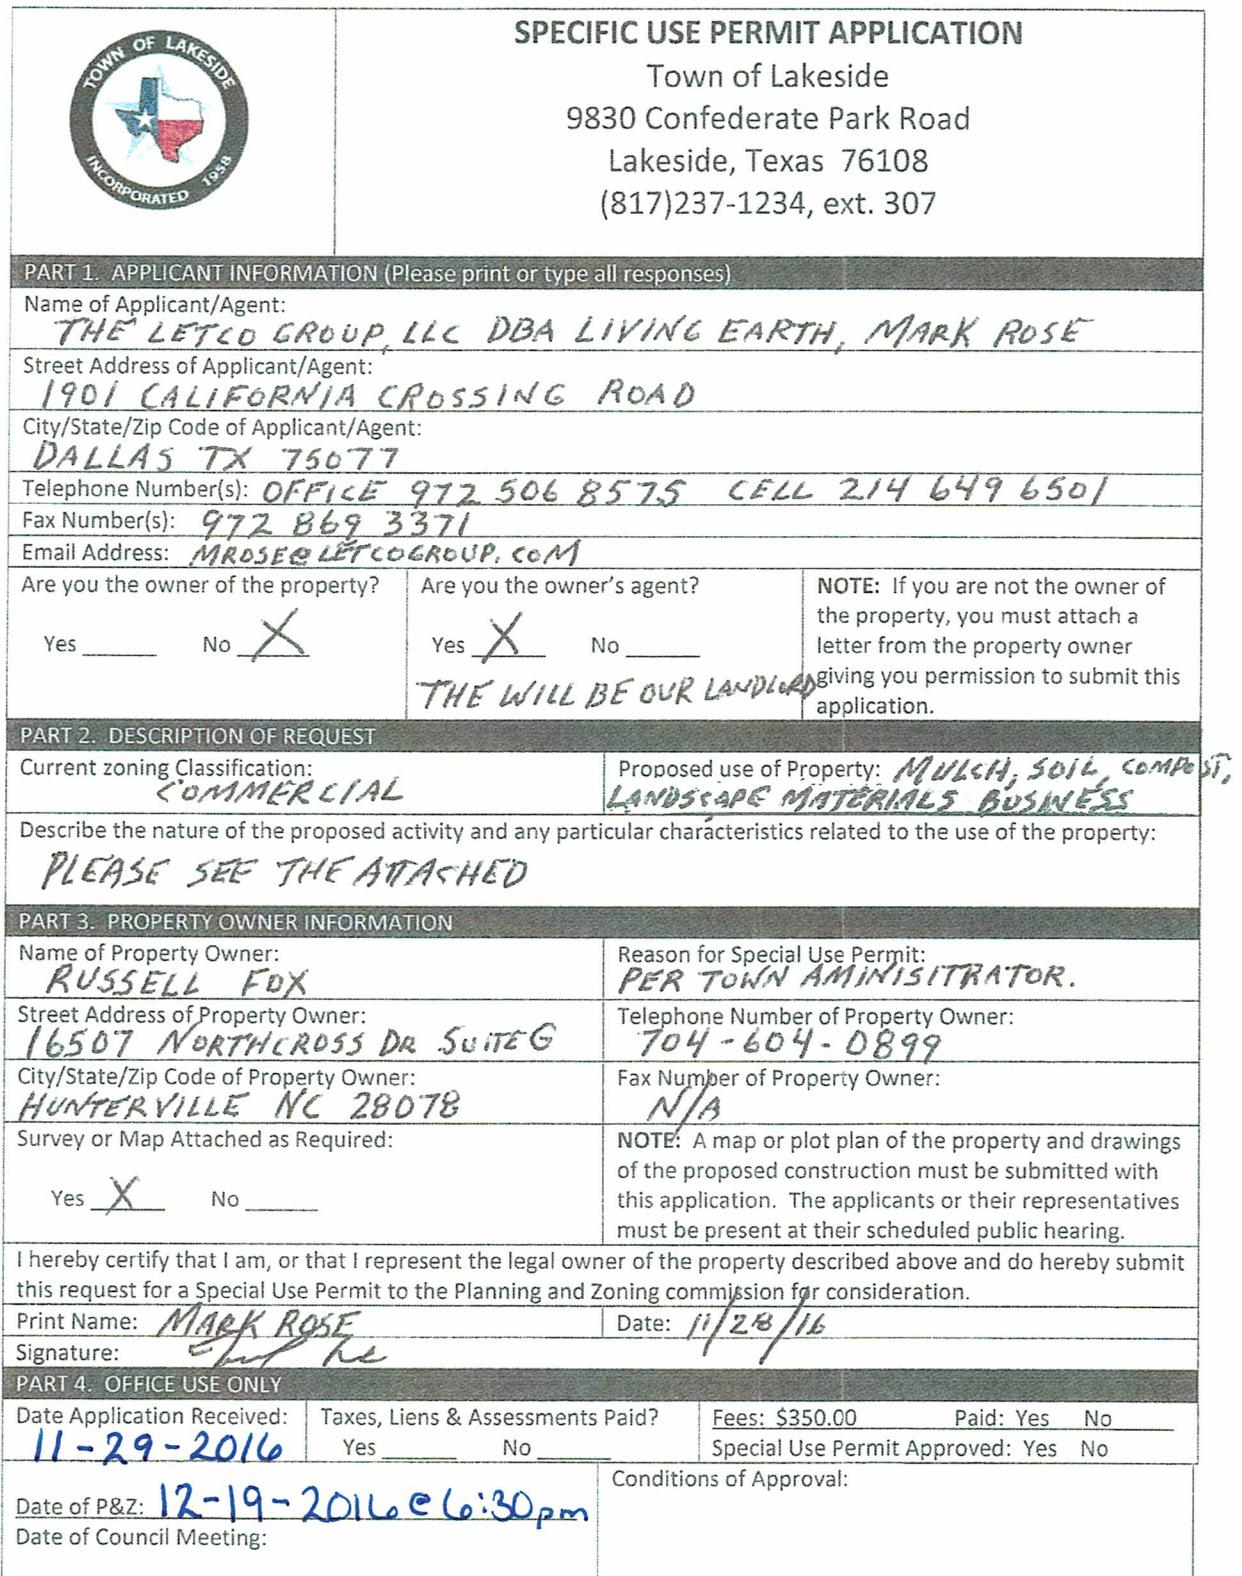 TOWN OF LAKESIDE
INCORPORATED 1958
SPECIFIC USE PERMIT APPLICATION
Town of Lakeside
9830 Confederate Park Road
Lakeside, Texas 76108
(817)237-1234, ext. 307
PART 1. APPLICANT INFORMATION (Please print or type all responses)
Name of Applicant/Agent:
THE LETCO GROUP, LLC DBA LIVING EARTH, MARK ROSE
Street Address of Applicant/Agent:
1901 CALIFORNIA CROSSING ROAD
City/State/Zip Code of Applicant/Agent:
DALLAS TX 75077
Telephone Number(s): OFFICE 972 506 8575 CELL 214 649 6501
Fax Number(s): 972 869 3371
Email Address: MROSE@LETCOGROUP.COM
Are you the owner of the property?
Yes ______ No X
Are you the owner's agent?
Yes X No ______
THE WILL BE OUR LANDLORD
NOTE: If you are not the owner of
the property, you must attach a
letter from the property owner
giving you permission to submit this
application.
PART 2. DESCRIPTION OF REQUEST
Current zoning Classification:
COMMERCIAL
Proposed use of Property: MULCH, SOIL, COMPOST,
LANDSCAPE MATERIALS BUSINESS
Describe the nature of the proposed activity and any particular characteristics related to the use of the property:
PLEASE SEE THE ATTACHED
PART 3. PROPERTY OWNER INFORMATION
Name of Property Owner:
RUSSELL FOX
Reason for Special Use Permit:
PER TOWN AMINISITRATOR.
Street Address of Property Owner:
16507 NORTHCROSS DR SUITE G
Telephone Number of Property Owner:
704-604-0899
City/State/Zip Code of Property Owner:
HUNTERVILLE NC 28078
Fax Number of Property Owner:
N/A
Survey or Map Attached as Required:
Yes X No ______
NOTE: A map or plot plan of the property and drawings
of the proposed construction must be submitted with
this application. The applicants or their representatives
must be present at their scheduled public hearing.
I hereby certify that I am, or that I represent the legal owner of the property described above and do hereby submit
this request for a Special Use Permit to the Planning and Zoning commission for consideration.
Print Name: MARK ROSE
Date: 11/28/16
Signature:
PART 4. OFFICE USE ONLY
Date Application Received:
11-29-2016
Taxes, Liens & Assessments Paid?
Yes ______ No ______
Fees: $350.00 Paid: Yes No
Special Use Permit Approved: Yes No
Date of P&Z: 12-19-2016 @ 6:30pm
Date of Council Meeting:
Conditions of Approval: